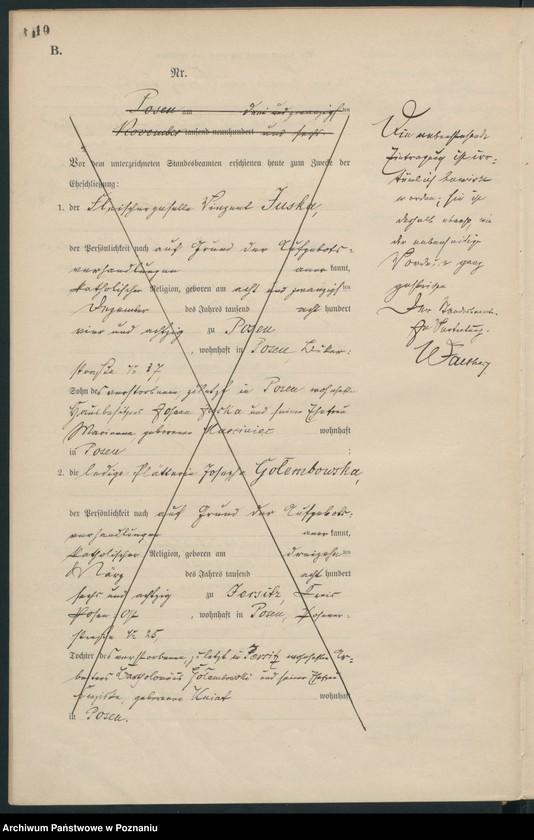 B.
Nr.
Posen am drei und zwanzigsten
November tausend neunhundert und sechs
Vor dem unterzeichneten Standesbeamten erschienen heute zum Zweck der
Eheschließung:
1. der Fleischergeselle Vinzent Juska,
der Persönlichkeit nach auf Grund der Aufgebots-
verhandlungen anerkannt,
katholischer Religion, geboren am acht und zwanzigsten
Dezember des Jahres tausend acht hundert
vier und achtzig zu Posen
, wohnhaft in Posen, Buker-
straße No 37,
Sohn des verstorbenen, zuletzt in Posen wohnhaft
Hausbesitzers Juska und seiner Ehefrau
Marianna geborene Marciniec wohnhaft
in Posen ;
2. die ledige Plätterin Josepha Golembowska,
der Persönlichkeit nach auf Grund der Aufgebots-
verhandlungen anerkannt,
katholischer Religion, geboren am dreizehnten
März des Jahres tausend acht hundert
sechs und achtzig zu Jersitz, Kreis
Posen Ost , wohnhaft in Posen, Posener-
straße No 25,
Tochter des verstorbenen, zuletzt in Jersitz wohnhaften Ar-
beiters Golembowski und seiner Ehefrau
geborene Kniat wohnhaft
in Posen.
Die nebenstehende
Eintragung ist irr-
tümlich bewirkt
worden; sie ist
deshalb ebenso, wie
die nebenseitige
ganz
gestrichen
Der Standesbeamte.
In Vertretung.
Archiwum Państwowe w Poznaniu